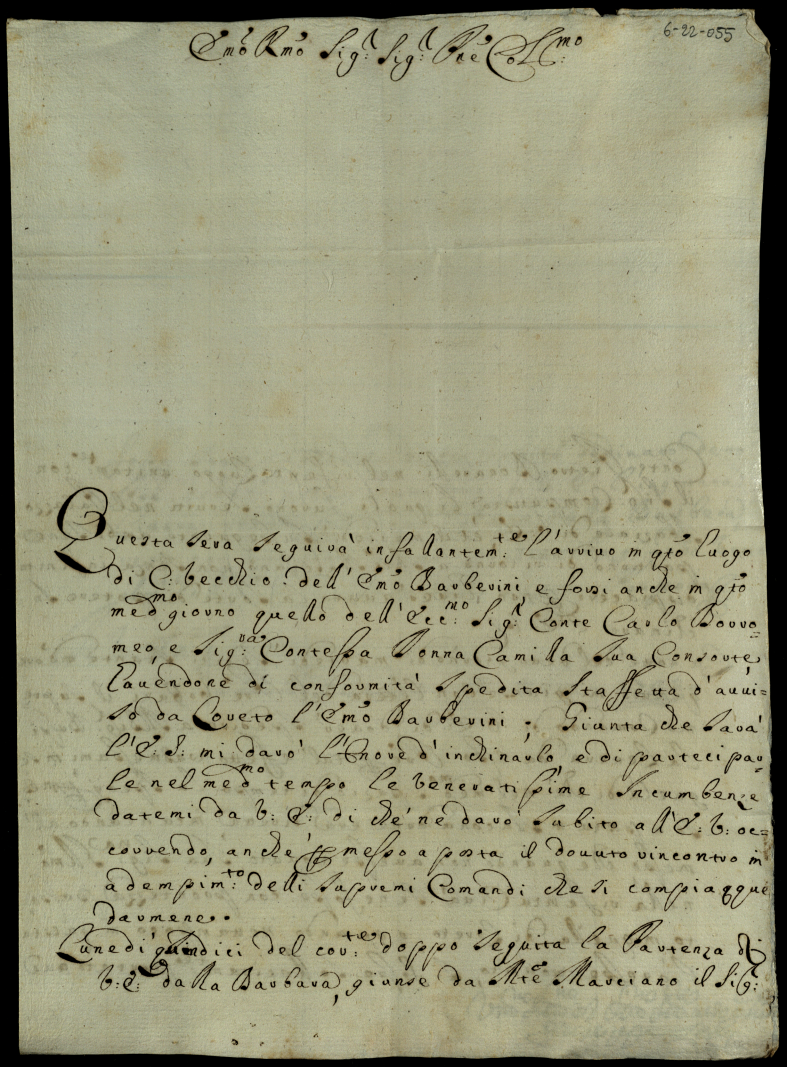 6-22-055
Em.o Rmo Sig.r Sig.r Pne Col.mo
Questa sera seguirà infallantem.te l'arrivo in q̃to luogo
di C: Vecchio dell' Emo Barberini, e forsi anche in q̃to
med.mo giorno quello dell' Ecc.mo Sig.r Conte Carlo Borro=
meo, e Sig.ra Contessa Donna Camilla sua Consorte
havendone di conformità spedita staffetta d'avvi=
so da Loreto l'Emo Barberini; Giunta che sarà
l'E: S: mi darò l'honore d'inchinarlo, e di partecipar=
le nel med.mo tempo le veneratissime Incumbenze
datemi da V: E: di che ne darò subito all' E: V: oc=
correndo, anche p messo a posta il dovuto rincontro in
adempim.to delli supremi Comandi che si compiacque
darmene.
Lunedì quindici del cor.te doppo seguita la Partenza di
V: E: dalla Barbara, giunse da Mte Marciano il Sig.r